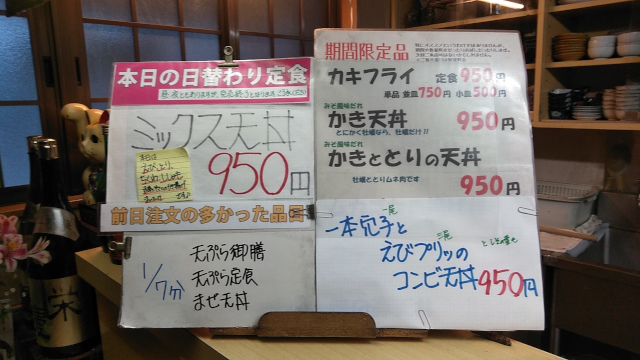 本日の日替わり定食
ミックス天丼
950円
前日注文の多かった品目
1/7分
天ぷら御膳
天ぷら定食
まぜ天丼
期間限定品
カキフライ 定食950円
単品 並皿750円 小皿500円
みそ風味だれ
かき天丼 950円
とにかく牡蠣なら、牡蠣だけ!!
みそ風味だれ
かきととりの天丼
牡蠣ととりムネ肉です 950円
一本穴子と
えびプリッの
コンビ天丼950円